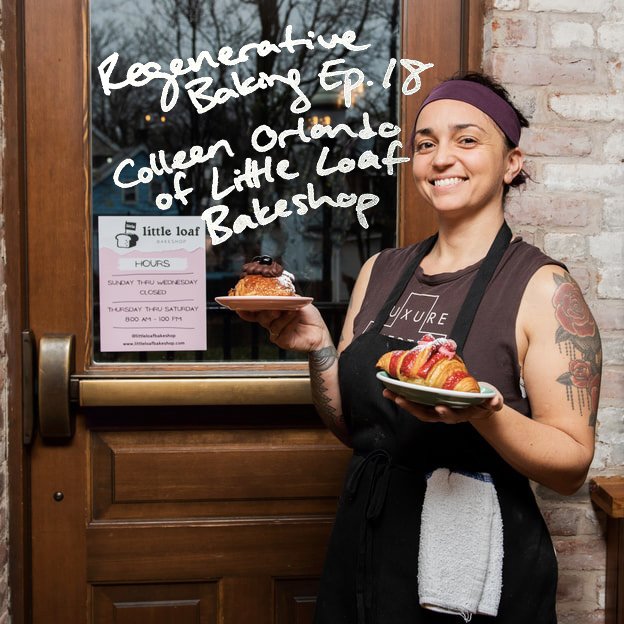 Regenerative
Baking Ep. 18
Colleen Orlando
of Little Loaf
Bakeshop
little loaf
BAKESHOP
HOURS
SUNDAY THRU WEDNESDAY
CLOSED
THURSDAY THRU SATURDAY
8:00 AM - 1:00 PM
@littleloafbakeshop
www.littleloafbakeshop.com
UXURE